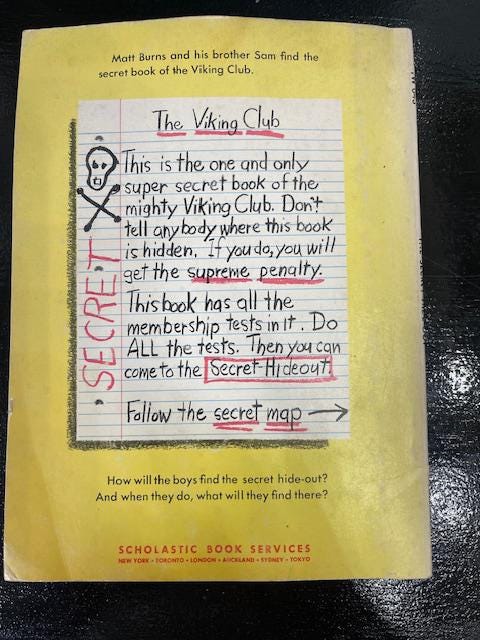 Matt Burns and his brother Sam find the
secret book of the Viking Club.
The Viking Club
This is the one and only
super secret book of the
mighty Viking Club. Don't
tell anybody where this book
is hidden. If you do, you will
get the supreme penalty.
This book has all the
membership tests in it. Do
ALL the tests. Then you can
come to the Secret Hideout.
Follow the secret map
SECRET
How will the boys find the secret hide-out?
And when they do, what will they find there?
SCHOLASTIC BOOK SERVICES
NEW YORK • TORONTO • LONDON • AUCKLAND • SYDNEY • TOKYO